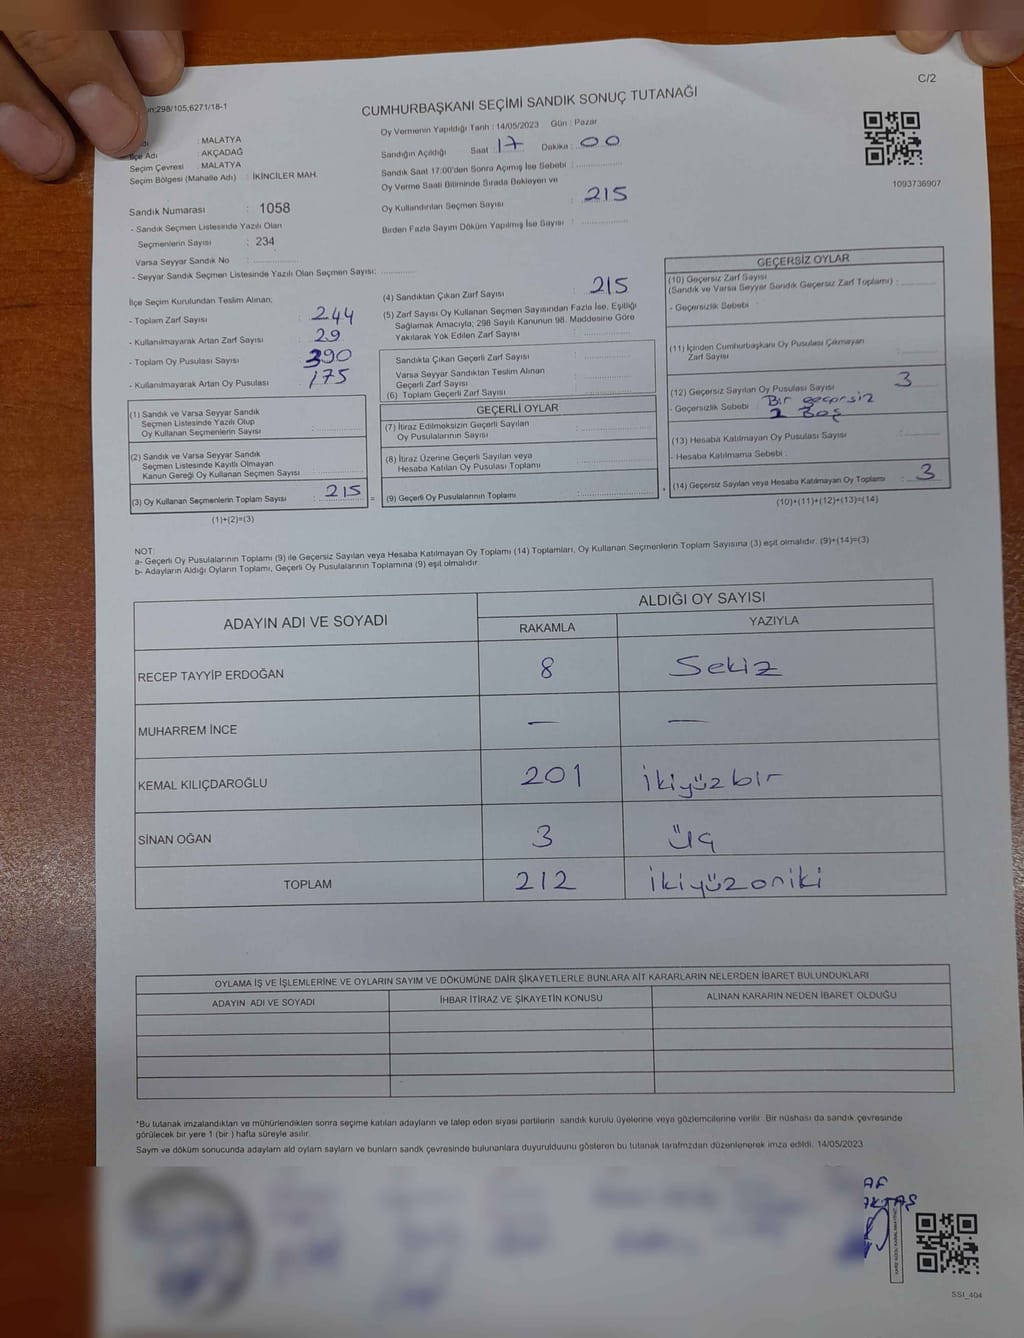 C/2
298/105,6271/18-1
CUMHURBAŞKANI SEÇİMİ SANDIK SONUÇ TUTANAĞI
: MALATYA
İlçe Adı : AKÇADAĞ
Seçim Çevresi : MALATYA
Seçim Bölgesi (Mahalle Adı) : İKİNCİLER MAH.
Oy Vermenin Yapıldığı Tarih : 14/05/2023 Gün : Pazar
Sandığın Açıldığı Saat : 17 Dakika : 00
Sandık Saat 17:00'den Sonra Açımış İse Sebebi :
Oy Verme Saati Bitiminde Sırada Bekleyen ve
Oy Kullandırılan Seçmen Sayısı : 215
Birden Fazla Sayım Döküm Yapılmış İse Sayısı :
1093736907
Sandık Numarası : 1058
- Sandık Seçmen Listesinde Yazılı Olan
Seçmenlerin Sayısı : 234
Varsa Seyyar Sandık No :
- Seyyar Sandık Seçmen Listesinde Yazılı Olan Seçmen Sayısı:
İlçe Seçim Kurulundan Teslim Alınan;
- Toplam Zarf Sayısı : 244
- Kullanılmayarak Artan Zarf Sayısı : 29
- Toplam Oy Pusulası Sayısı : 390
- Kullanılmayarak Artan Oy Pusulası : 175
(1) Sandık ve Varsa Seyyar Sandık
Seçmen Listesinde Yazılı Olup
Oy Kullanan Seçmenlerin Sayısı :
(2) Sandık ve Varsa Seyyar Sandık
Seçmen Listesinde Kayıtlı Olmayan
Kanun Gereği Oy Kullanan Seçmen Sayısı :
(3) Oy Kullanan Seçmenlerin Toplam Sayısı : 215 =
(1)+(2)=(3)
(4) Sandıktan Çıkan Zarf Sayısı : 215
(5) Zarf Sayısı Oy Kullanan Seçmen Sayısından Fazla İse, Eşitliği
Sağlamak Amacıyla; 298 Sayılı Kanunun 98. Maddesine Göre
Yakılarak Yok Edilen Zarf Sayısı :
Sandıkta Çıkan Geçerli Zarf Sayısı :
Varsa Seyyar Sandıktan Teslim Alınan
Geçerli Zarf Sayısı :
(6) Toplam Geçerli Zarf Sayısı :
GEÇERLİ OYLAR
(7) İtiraz Edilmeksizin Geçerli Sayılan
Oy Pusulalarının Sayısı :
(8) İtiraz Üzerine Geçerli Sayılan veya
Hesaba Katılan Oy Pusulası Toplamı :
(9) Geçerli Oy Pusulalarının Toplamı : +
GEÇERSİZ OYLAR
(10) Geçersiz Zarf Sayısı
(Sandık ve Varsa Seyyar Sandık Geçersiz Zarf Toplamı) :
- Geçersizlik Sebebi :
(11) İçinden Cumhurbaşkanı Oy Pusulası Çıkmayan
Zarf Sayısı :
(12) Geçersiz Sayılan Oy Pusulası Sayısı : 3
- Geçersizlik Sebebi : Bir geçersiz
2 Boş
(13) Hesaba Katılmayan Oy Pusulası Sayısı :
- Hesaba Katılmama Sebebi :
(14) Geçersiz Sayılan veya Hesaba Katılmayan Oy Toplamı : 3
(10)+(11)+(12)+(13)=(14)
NOT:
a- Geçerli Oy Pusulalarının Toplamı (9) ile Geçersiz Sayılan veya Hesaba Katılmayan Oy Toplamı (14) Toplamları, Oy Kullanan Seçmenlerin Toplam Sayısına (3) eşit olmalıdır. (9)+(14)=(3)
b- Adayların Aldığı Oyların Toplamı, Geçerli Oy Pusulalarının Toplamına (9) eşit olmalıdır.
ADAYIN ADI VE SOYADI
ALDIĞI OY SAYISI
RAKAMLA YAZIYLA
RECEP TAYYİP ERDOĞAN 8 Sekiz
MUHARREM İNCE — —
KEMAL KILIÇDAROĞLU 201 ikiyüzbir
SİNAN OĞAN 3 üç
TOPLAM 212 ikiyüzoniki
OYLAMA İŞ VE İŞLEMLERİNE VE OYLARIN SAYIM VE DÖKÜMÜNE DAİR ŞİKAYETLERLE BUNLARA AİT KARARLARIN NELERDEN İBARET BULUNDUKLARI
ADAYIN ADI VE SOYADI İHBAR İTİRAZ VE ŞİKAYETİN KONUSU ALINAN KARARIN NEDEN İBARET OLDUĞU
*Bu tutanak imzalandıktan ve mühürlendikten sonra seçime katılan adayların ve talep eden siyasi partilerin sandık kurulu üyelerine veya gözlemcilerine verilir. Bir nüshası da sandık çevresinde
görülecek bir yere 1 (bir ) hafta süreyle asılır.
Sayım ve döküm sonucunda adayların ald oyların sayları ve bunların sandk çevresinde bulunanlara duyurulduunu gösteren bu tutanak tarafmzdan düzenlenerek imza edildi. 14/05/2023
SSI_404